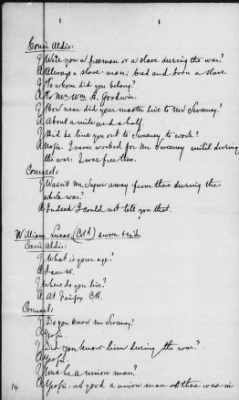 Com'r Aldis:
Q Were you a freeman or a slave during the war?
A Always a slave man; bad and born a slave.
Q To whom did you belong?
A To Mr. Wm H. Goodwin.
Q How near did your master live to Mr Sweeney?
A About a mile and a half.
Q Did he hire you out to Sweeney to work?
A No sir. I never worked for Mr Sweeney until during
the war. I was free then.
Counsel:
Q Wasn't Mr away from there during the
whole war?
A Indeed I could not tell you that.
William Lucas (Col'd) sworn & said:
Com'r Aldis:
Q What is your age?
A I am
Q Where do you live?
A At Fairfax C.H.
Counsel:
Q Do you know Mr Sweeney?
A Yes sir.
Q Did you know him during the war?
A Yes sir.
Q Was he a union man?
A Yes sir. As good a union man as there was in